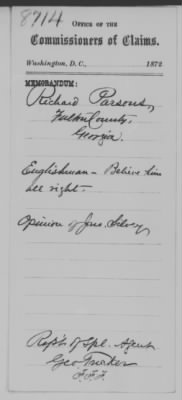 8714
OFFICE OF THE
Commissioners of Claims.
Washington, D. C., 1872
MEMORANDUM:
Richard Parsons,
Fulton County,
Georgia.
Englishman – Believe him
all right –
Opinion of Jno. Silvey
Rept of Spl. Agent
Geo. Tucker